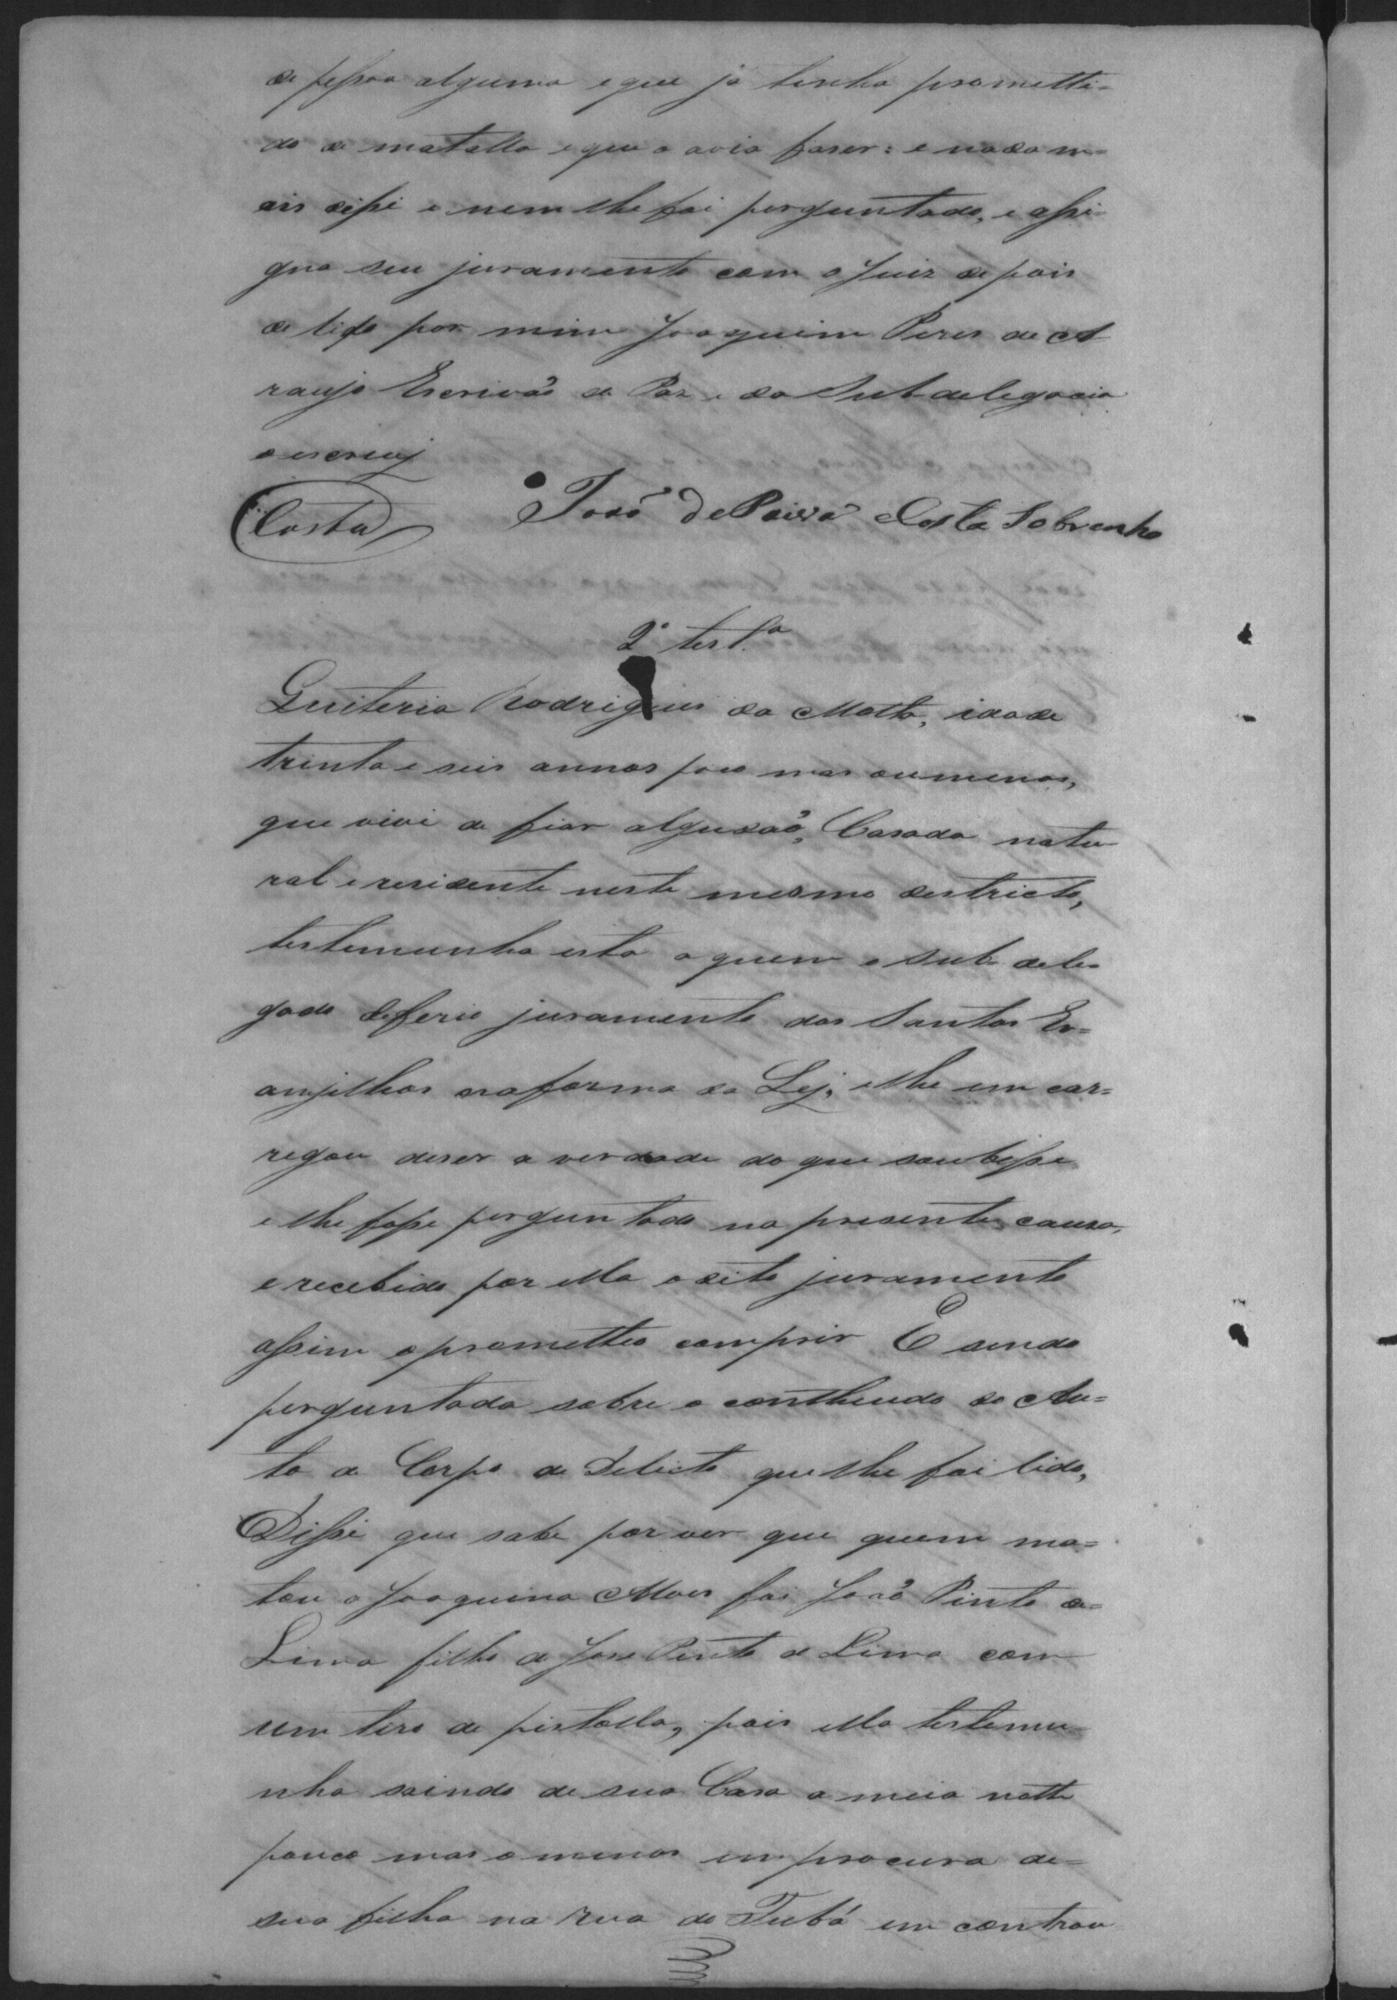 de pessoa alguma e que ja tinha prometti-
do de matalla e que o avia faser: e nada m-
ais disse e nem lhe foi perguntado, e assi-
gna seu juramento com o Juiz depois
de lido por mim Joaquim Peres de A
raujo Escrivaõ de Paz e da Subdelegacia
o escrevy
Costa João de Paiva Costa Sobrenho
2ª test.ª
Quiteria Rodrigues da Motta, idade
trinta e seis annos pouco mas ou menos,
que vive de fiar algudaõ, Casada natu
ral e residente neste mesmo destricto,
testemunha esta a quem o Sub dele-
gado deferio juramento dos Santos Ev-
anjelhos na forma da Ley, e lhe em car-
regou diser a verdade do que soubesse
e lhe fosse perguntado na presente causa,
e recebido por ella o dito juramento
assim o prometteo comprir E sendo
perguntada sobre o conthiudo do Au-
to de Corpo de Delicto que lhe foi lido,
Disse que sabe por ver que quem ma-
tou a Joaquina Alves foi João Pinto de
Lima filho de Jose Pinto de Lima com
um tiro de pistolla, pois ella testemu-
nha saindo de sua Casa a meia notte
pouco mas o menos em procura de
sua filha na rua do Tubá em controu